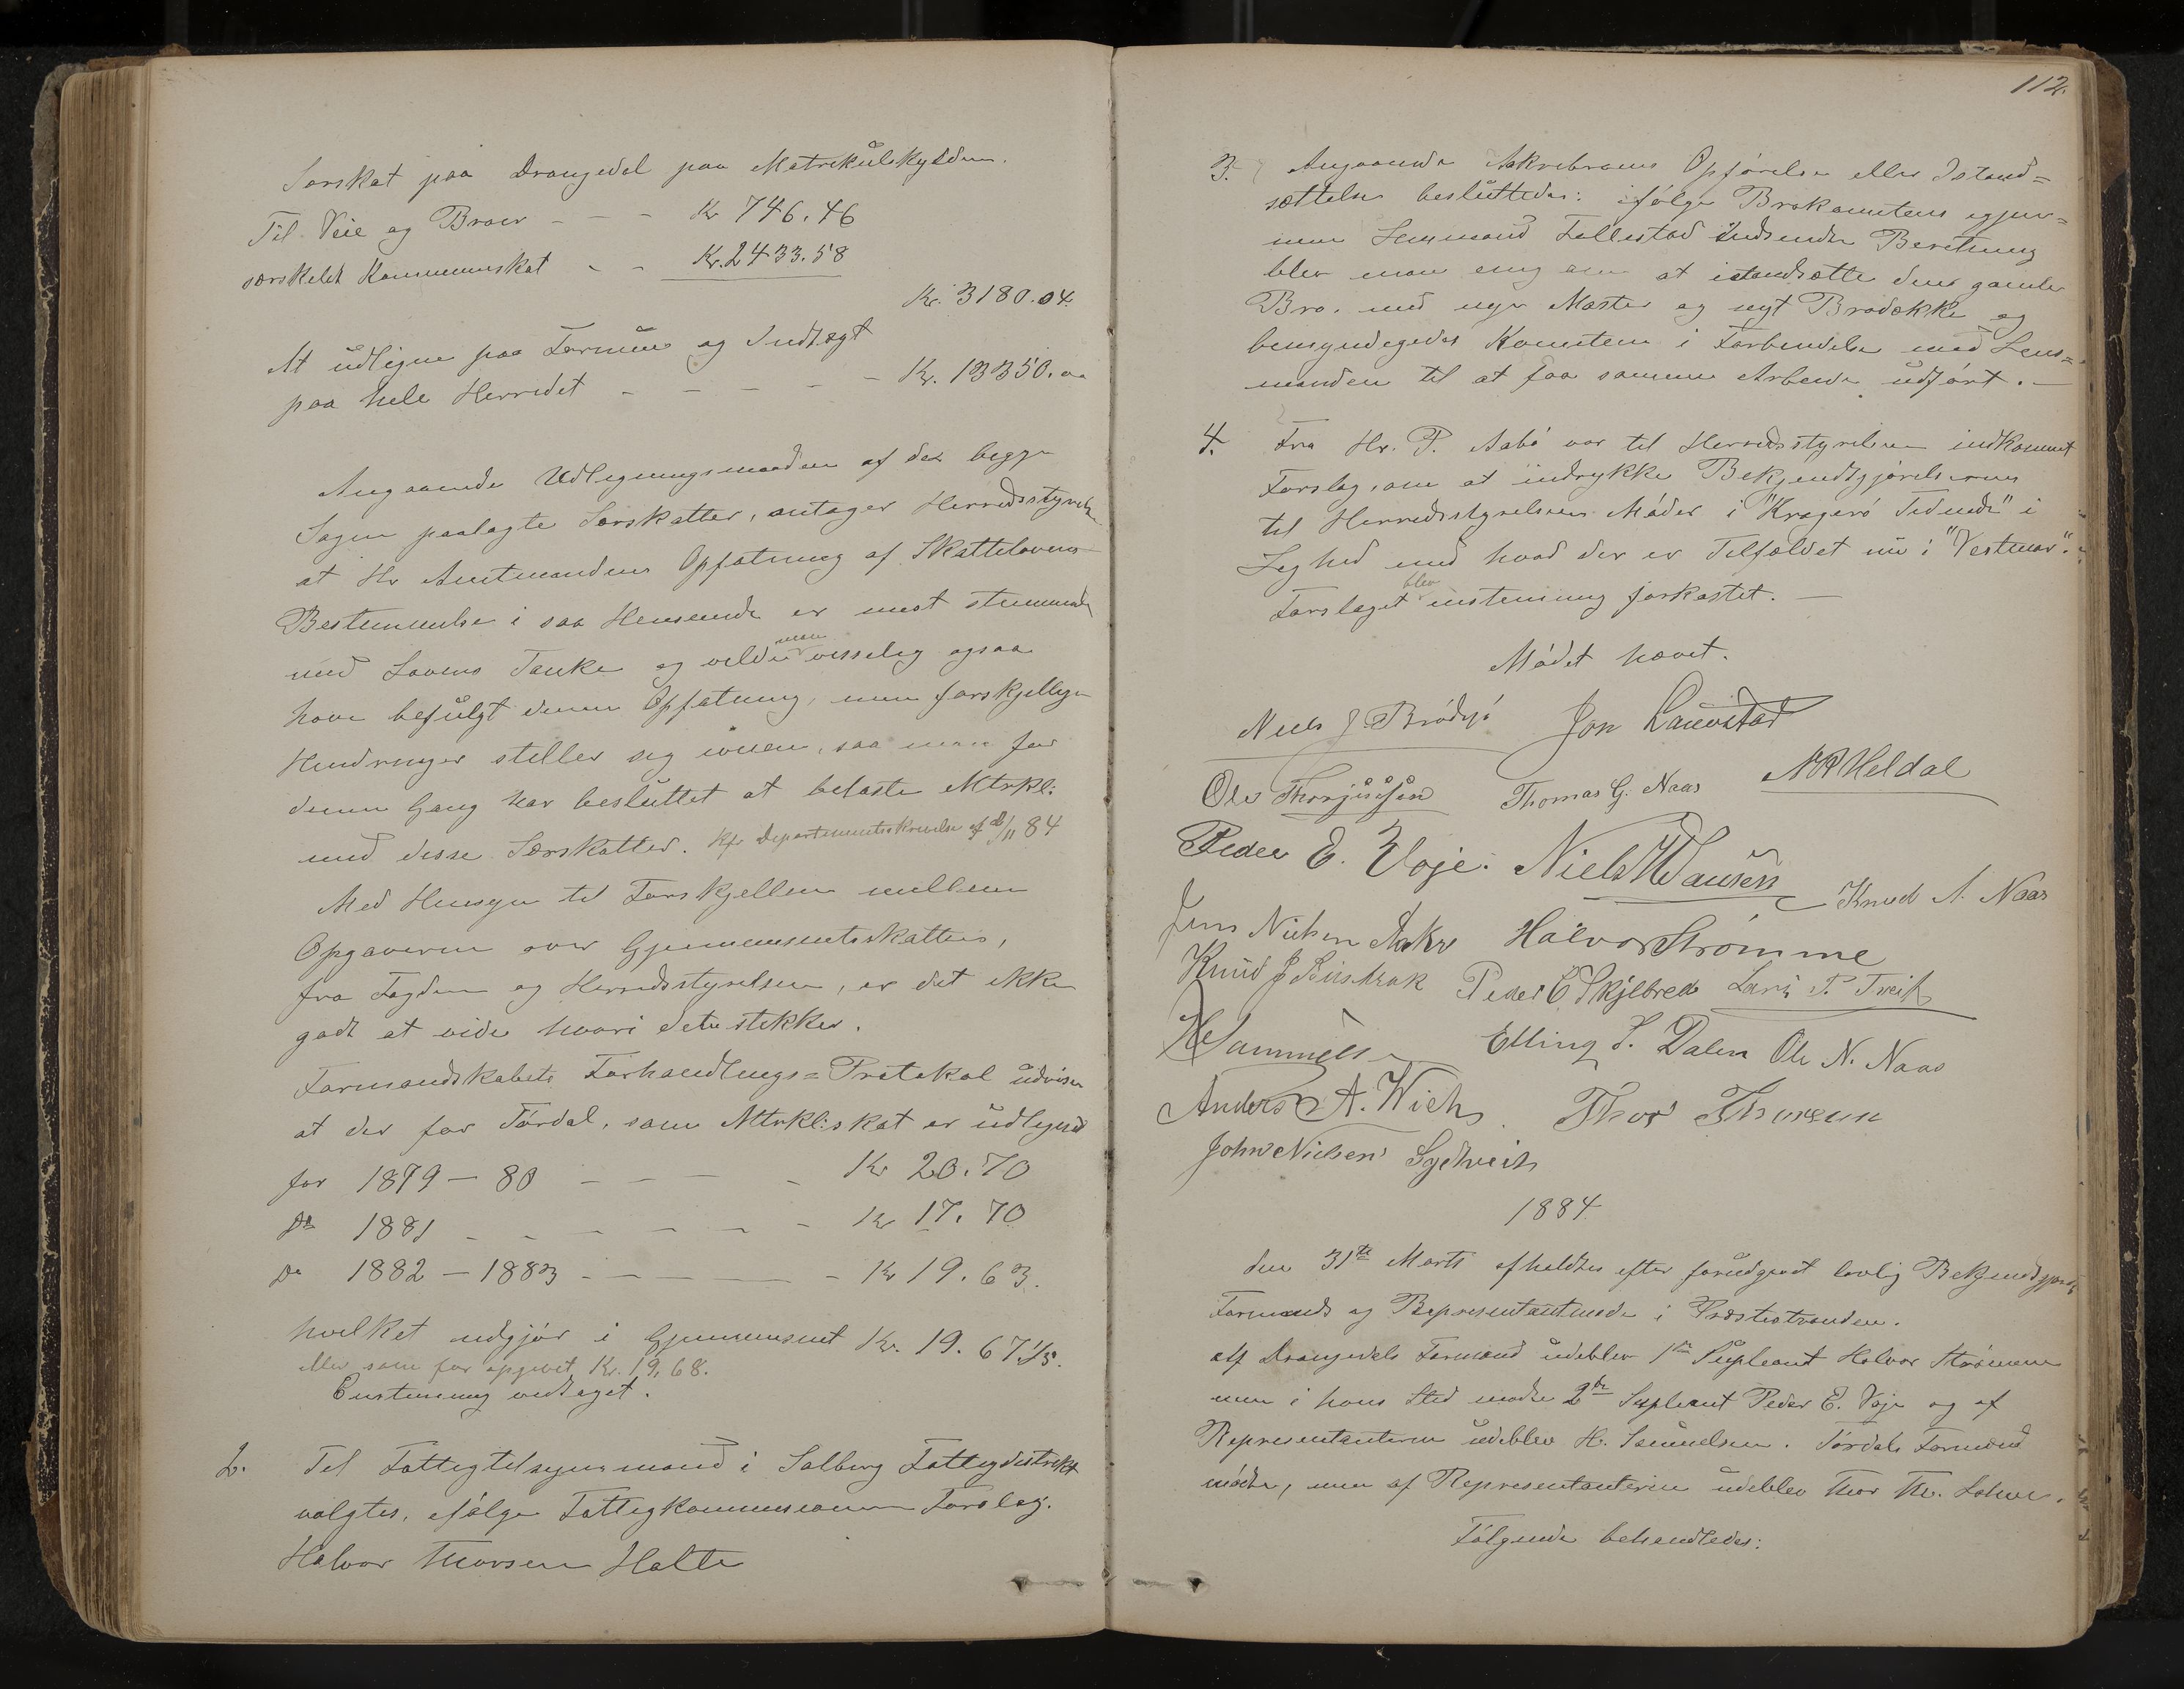 Særskat paa Drangedal paa Matrikulskylden.
Til Veie og Broer - - - Kr 746.46
særskildt Kommuneskat - - Kr. 2433.58
Kr. 3180.04.
At udligne paa Formue og Indtægt
paa hele Herredet - - - - Kr. 13350.00
Angaaende Udligningsmaaden af de begge
Sogne paalagte Særskatter, antager Herredsstyrelsen
at Hr Amtmandens Opfatning af Skattelovens
Bestemmelse i saa Henseende er mest stemmende
med Lovens Tanke og vilde man visselig ogsaa
have befulgt denne Opfatning, men forskjellige
Hindringer stiller sig imod, saa man for
denne Gang har besluttet at belaste Mtrkl:
med disse Særskatter. Kfr Departementsskrivelse af /11 84
Med Hensyn til Forskjellen mellem
Opgaverne over Gjennemsnitsskatten,
fra Fogden og Herredsstyrelsen, er det ikke
godt at vide hvori dette stikker.
Formandskabets Forhandlings=Protokol udviser
at der for Tørdal, som Mtrkl:skat er udlignet
for 1879 - 80 - - - - Kr 20.70
Do 1881 - - - - - - Kr 17.70
Do 1882 - 1883 - - - - Kr 19.63.
hvilket udgjør i Gjennemsnit Kr. 19.67 1/3.
eller som før opgivet Kr. 19,68.
Enstemmig vedtaget.
2. Til Fattigtilsynsmand i Solberg Fattigdistrikt
valgtes, ifølge Fattigkommissionens Forslag.
Halvor Thorsen Holte
112.
3. Angaaende Aakrebroens Opførelse eller Istand=
sættelse besluttedes: ifølge Brokomiteens igjen=
nem Lensmand Tellestad indsendte Beretning
blev man enig om at istandsætte den gamle
Bro. med nye Master og nyt Brodække og
bemyndigedes Komiteen i Forbindelse med Lens=
manden til at faa samme Arbeide udført. -
4. Fra Hr. P. Aabø var til Herredsstyrelsen indkommet
Forslag, om at indrykke Bekjendtgjørelserne
til Herredsstyrelsens Møder i "Kragerø Tidende" i
Lighed med hvad der er Tilfældet nu i "Vestmar".
Forslaget blev enstemmig forkastet. -
Mødet hævet.
Niels J. Brødsjø Jon Lauvstad
Ole Thorjussen Thomas G. Naas N P Heldal
Peder E. Voje. Niels H Hansen Knud A. Naas
Jens Nielsen Aakre Halvor Strømme
Knud J Peder E Skjelbred Lars P. Tveit
H Samuels Elling S. Dalen Ole N. Naas
Anders A. Wiek Thor Thoresen
John Nielsen Sydtveit
1884
den 31te Marts afholdtes efter forudgaaet lovlig Bekjendtgjørelse
Formands og Representantmøde i Præstestranden.
Af Drangedals Formænd udeblev 1ste Supleant Halvor Strømme
men i hans Sted mødte 2den Supleant Peder E. Voje og af
Representanterne udeblev H. Samuelsen. Tørdals Formænd
mødte, men af Representanterne udeblev Thor Th.
Følgende behandledes: